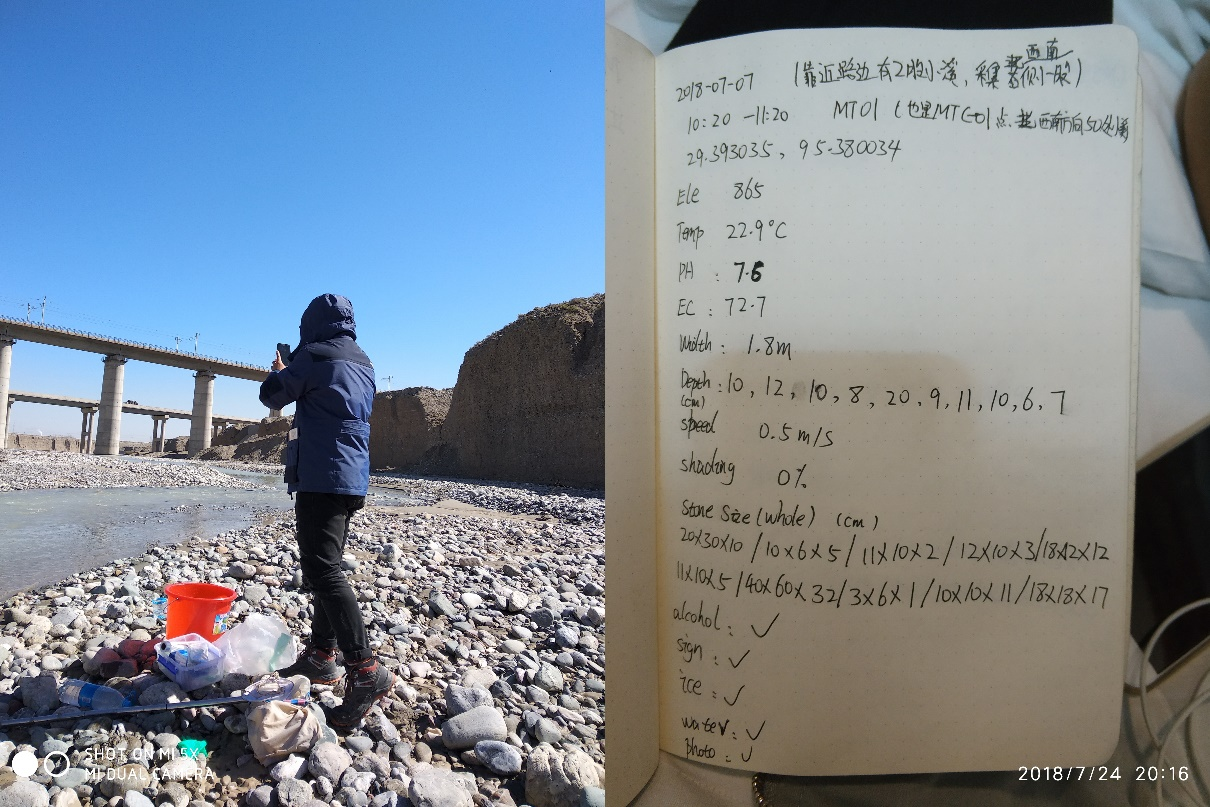 SHOT ON MI 5X
MI DUAL CAMERA
2018-07-07 (靠近路边有2股小溪, 西南侧一股)
10:20 -11:20 MT01 (也是MT 01点 西南方向50米
29.393035, 95.380034
Ele 865
Temp 22.9°C
PH : 7.6
EC : 72.7
Width : 1.8m
Depth : 10, 12, 10, 8, 20, 9, 11, 10, 6, 7
(cm)
speed 0.5 m/s
shading 0%
Stone Size (whole) (cm)
20x30x10 / 10x6x5 / 11x10x2 / 12x10x3 / 18x22x12
11x10x5 / 40x60x32 / 3x6x1 / 10x10x11 / 18x18x17
alcohol : ✓
sign : ✓
ice : ✓
water : ✓
photo : ✓
2018/7/24 20:16